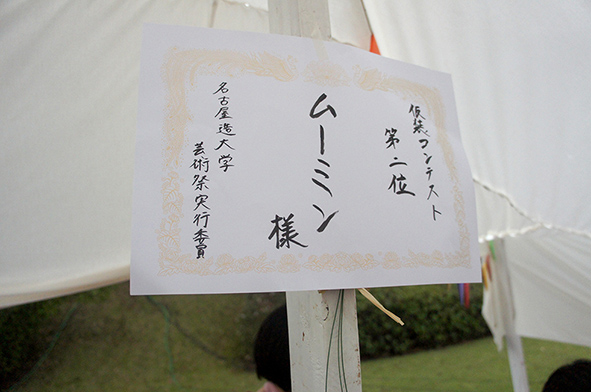 仮装コンテスト
第二位
ムーミン
様
名古屋造大学
芸術祭実行委員